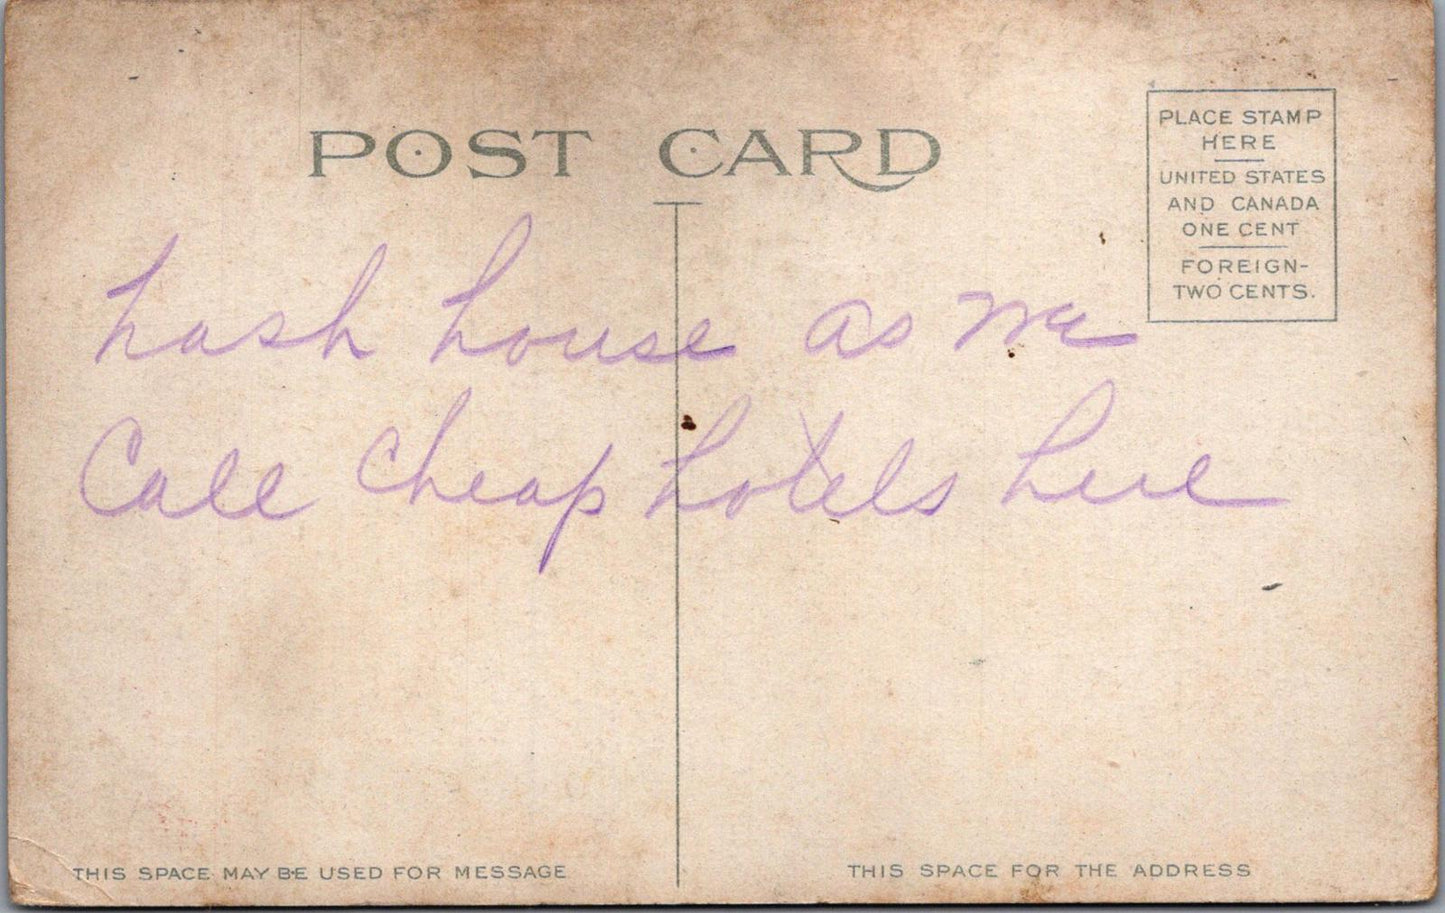 POST CARD
PLACE STAMP
HERE
UNITED STATES
AND CANADA
ONE CENT
FOREIGN-
TWO CENTS.
hash house as we
Call cheap hotels here
THIS SPACE MAY BE USED FOR MESSAGE
THIS SPACE FOR THE ADDRESS